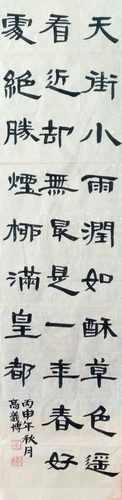 天街小雨潤如酥草色遥
看近却無最是一年春好
處絕勝煙柳滿皇都
丙申年秋月
高義博